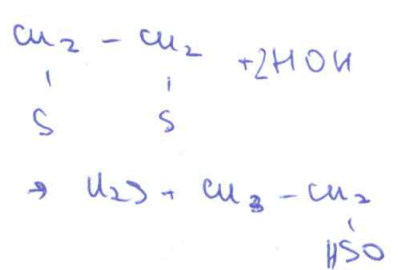 CH2 - CH2 +2HOH
S S
→ H2S + CH3 - CH2
HSO